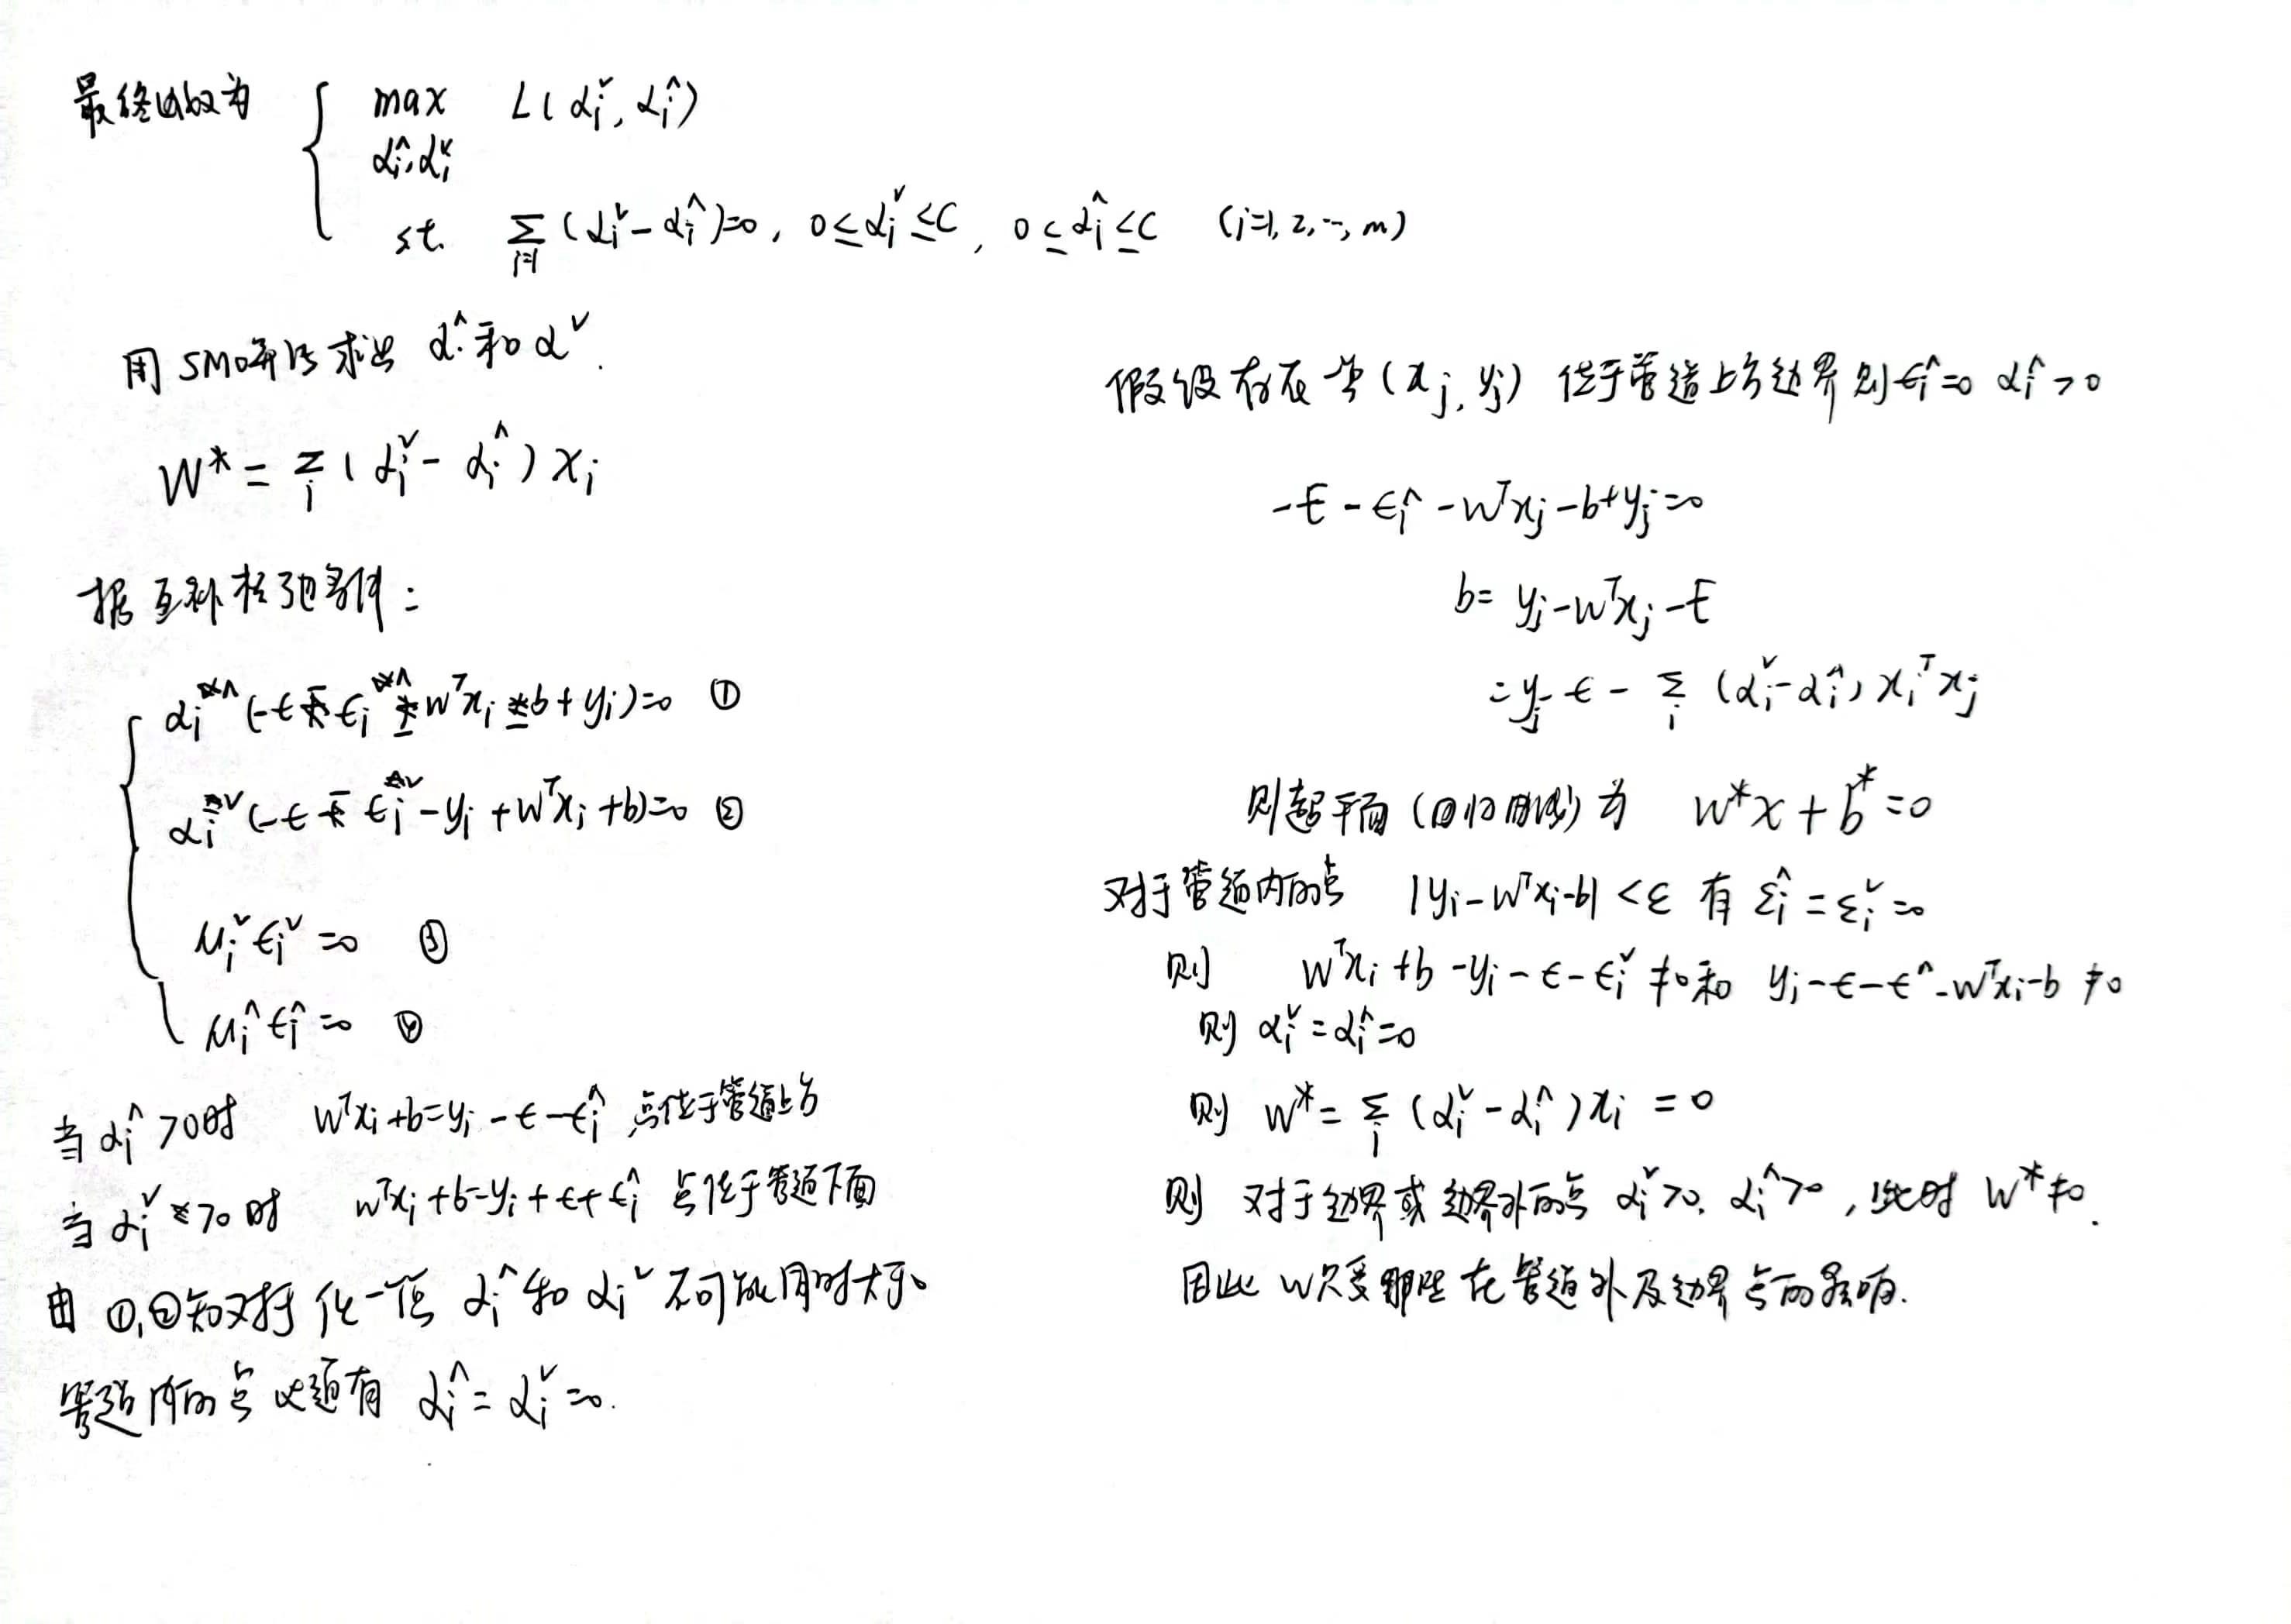 最终函数为 { max L(αᵢ^∨, αᵢ^∧)
αᵢ^∧, αᵢ^∨
s.t. Σ_{i=1} (αᵢ^∨ - αᵢ^∧)=0, 0≤αᵢ^∨≤C, 0≤αᵢ^∧≤C (i=1, 2, …, m)
用SMO算法求出 α^∧ 和 α^∨.
W* = Σ_i (αᵢ^∨ - αᵢ^∧) xᵢ
据互补松弛条件:
αᵢ^∧ (-ϵ - ϵᵢ^∧ - wᵀxᵢ - b + yᵢ)=0 ①
αᵢ^∨ (-ϵ - ϵᵢ^∨ - yᵢ + wᵀxᵢ + b)=0 ②
μᵢ^∨ ϵᵢ^∨ = 0 ③
μᵢ^∧ ϵᵢ^∧ = 0 ④
当 αᵢ^∧ >0时 wᵀxᵢ+b=yᵢ - ϵ - ϵᵢ^∧ 点位于管道上方
当 αᵢ^∨ >0时 wᵀxᵢ+b=yᵢ + ϵ + ϵᵢ^∧ 点位于管道下面
由 ①,②知对于任一值 αᵢ^∧ 和 αᵢ^∨ 不可能同时大于0
管道内的点 有 αᵢ^∧ = αᵢ^∨ = 0.
假设存在 (xⱼ, yⱼ) 位于管道上方边界 则 ϵᵢ^∧=0 αᵢ^∧>0
-ϵ - ϵᵢ^∧ - wᵀxⱼ - b + yⱼ = 0
b= yⱼ - wᵀxⱼ - ϵ
= yⱼ - ϵ - Σ_i (αᵢ^∨ - αᵢ^∧) xᵢᵀxⱼ
则超平面 (回归函数) 为 w*x + b* = 0
对于管道内的点 |yᵢ - wᵀxᵢ - b| < ε 有 εᵢ^∧ = εᵢ^∨ = 0
则 wᵀxᵢ + b - yᵢ - ϵ - ϵᵢ^∨ ≠0 和 yᵢ - ϵ - ϵ^∧ - wᵀxᵢ - b ≠0
则 αᵢ^∨ = αᵢ^∧ = 0
则 W* = Σ_i (αᵢ^∨ - αᵢ^∧) xᵢ = 0
则 对于边界或边界外的点 αᵢ^∨>0, αᵢ^∧>0, 此时 W*≠0.
因此 W只受那些在管道外及边界点的影响.